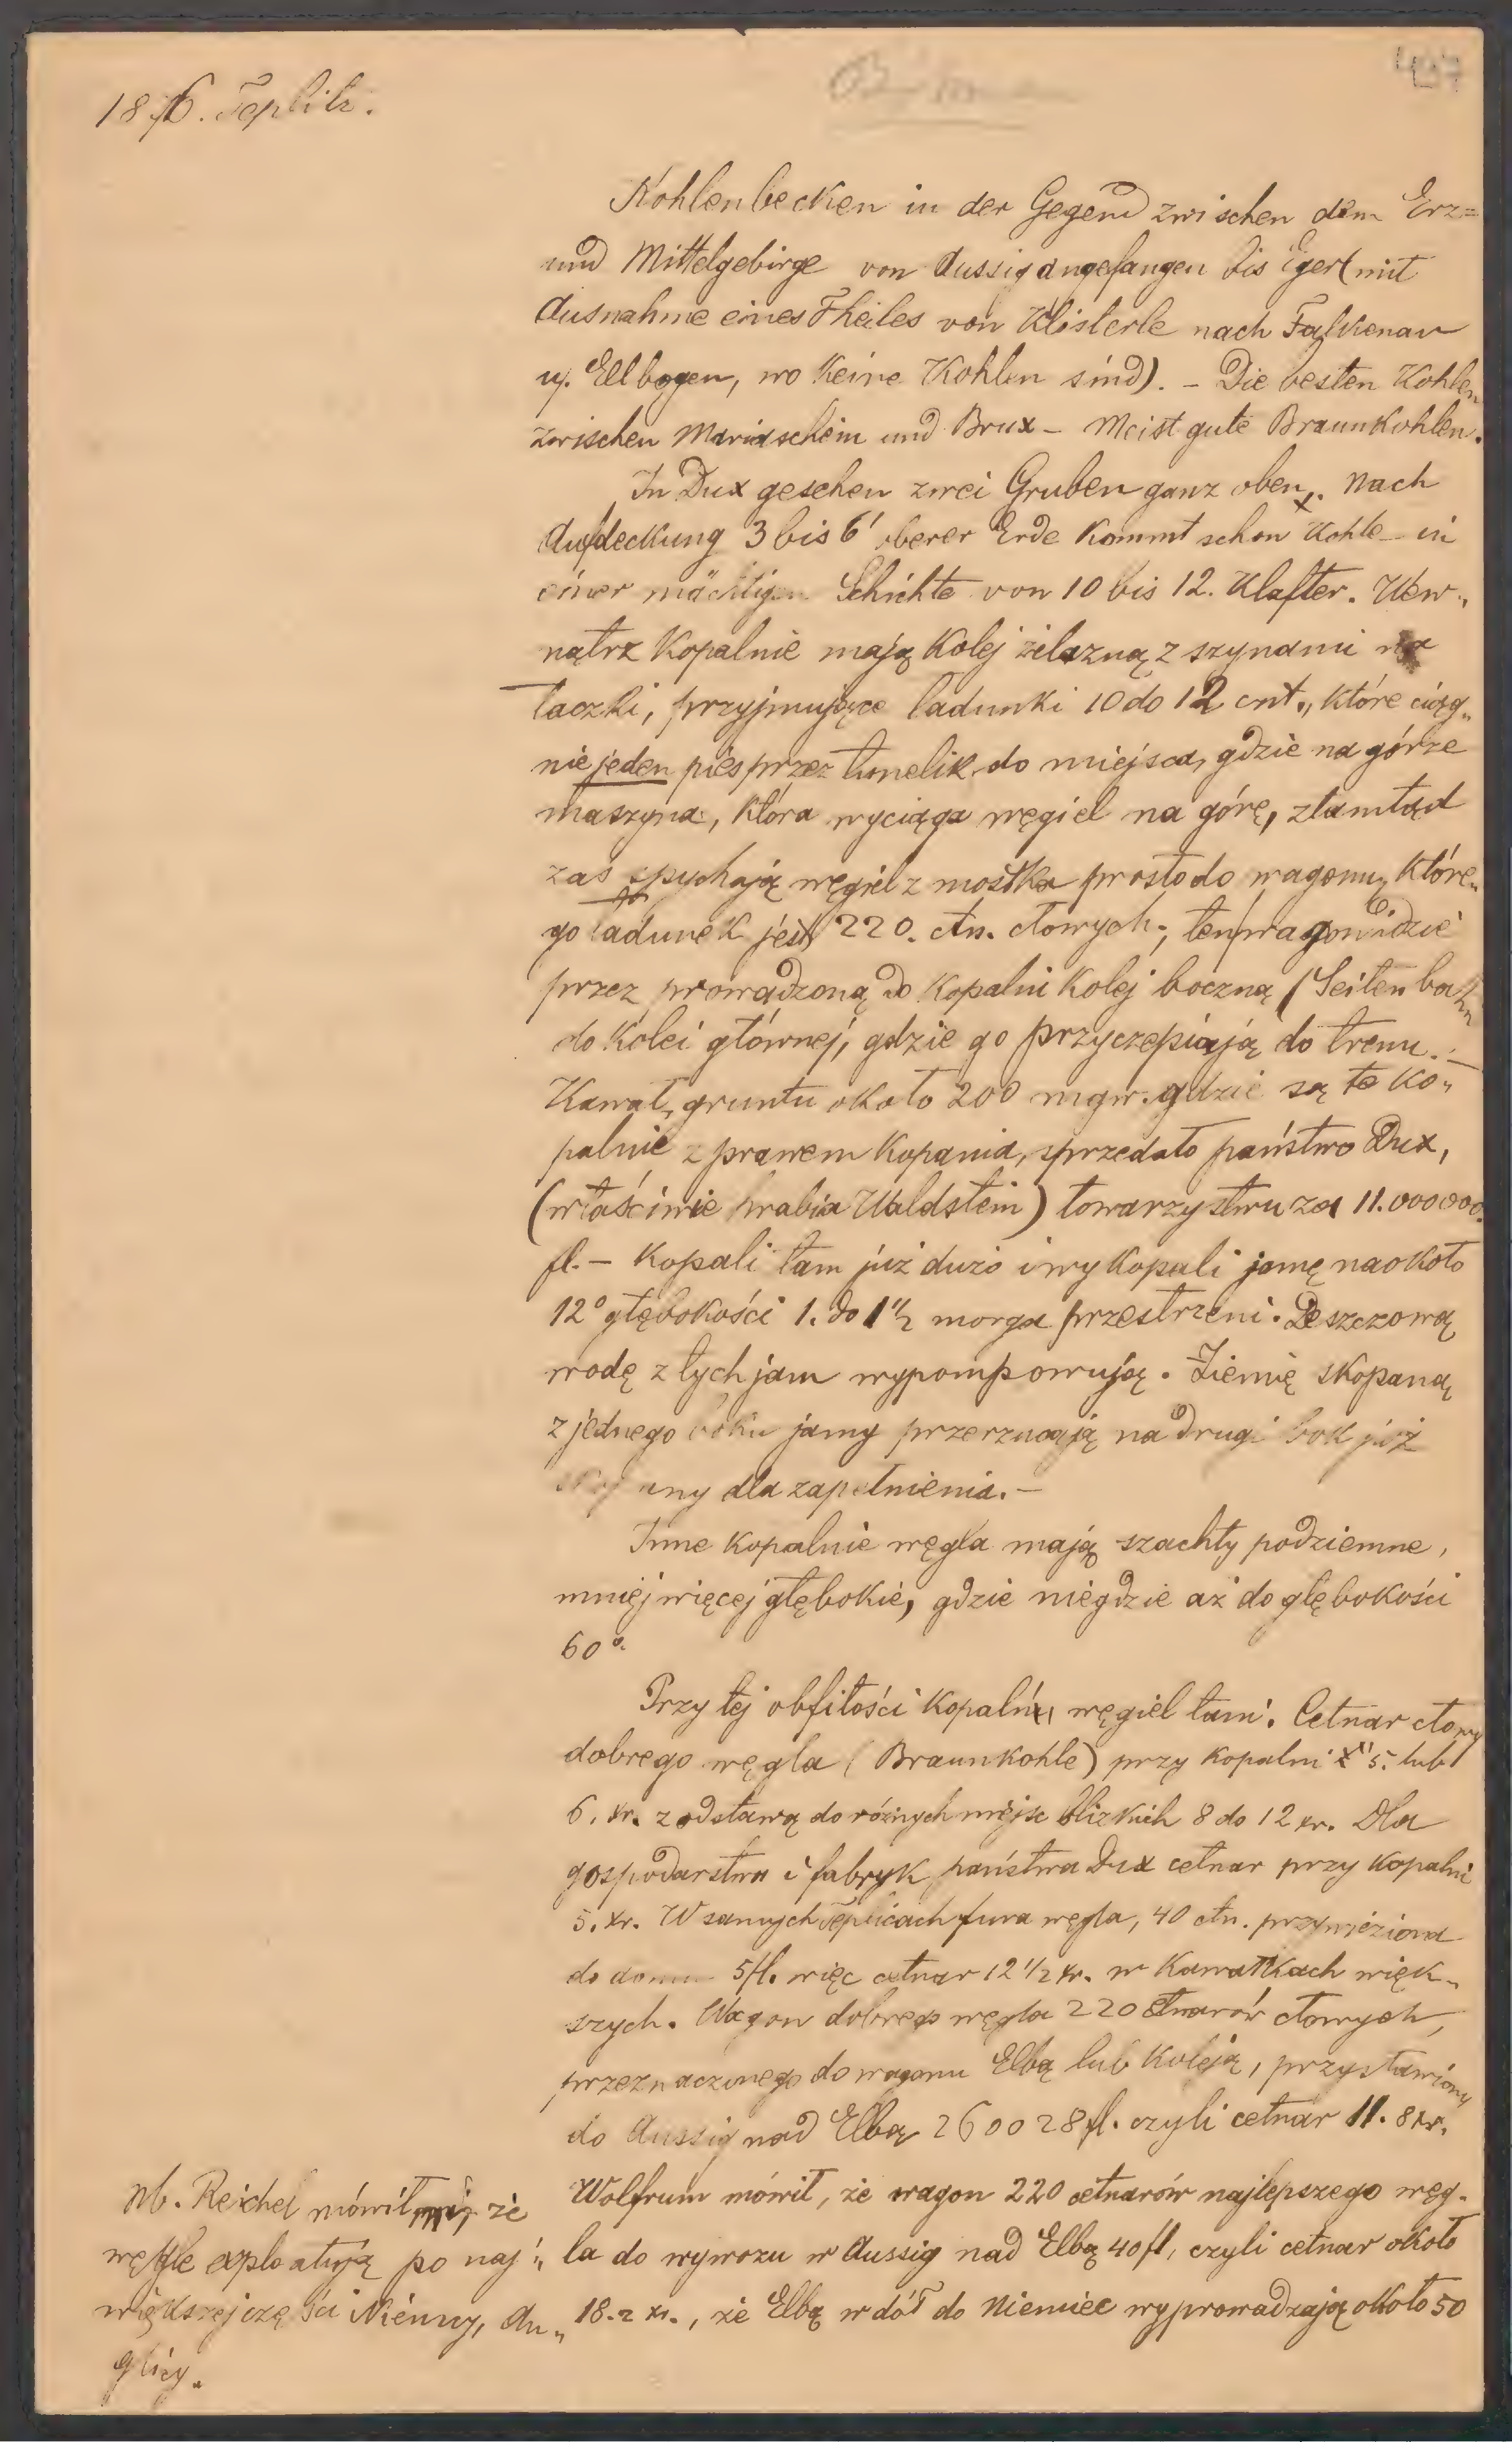 1876. Teplitz.
Kohlenbecken in der Gegend zwischen dem Erz=
und Mittelgebirge von Aussig angefangen bis Eger (mit
Ausnahme eines Theiles von Klösterle nach Falkenau
u. Ellbogen, wo keine Kohlen sind). – Die besten Kohlen
zwischen Mariaschein und Brux – Meist gute Braunkohlen.
In Dux gesehen zwei Gruben ganz oben. Nach
Aufdeckung 3 bis 6' oberer Erde kommt schon Kohle – in
einer mächtigen Schichte von 10 bis 12. Klafter. Wew„
nątrz kopalnie mają kolej żelazną z szynami na
taczki, przyjmujące ladunki 10 do 12 cnt., które ciąg„
nie jeden pies przez tunelik do miejsca, gdzie na górze
maszyna, która wyciąga węgiel na górę, ztamtąd
zaś spychają węgiel z mostka prosto do wagonu, które„
go ladunek jest 220. ctn. cłowych; ten wagon idzie
przez prowadzoną do kopalni kolej boczną (Seitenbahn
do kolei głównej, gdzie go przyczepiają do trenu. –
Kawał gruntu około 200 mgw. gdzie są te ko„
palnie z prawem kopania, sprzedało państwo Dux,
(właściwie hrabia Waldstein) towarzystwu za 11.000000.
fl. – Kopali tam już dużo i wykopali jamę naokoło
12° głębokości 1. do 1 1/2 morga przestrzeni. Deszczową
wodę z tych jam wypompowują. Ziemię skopaną
z jednego boku jamy przerzucają na drugi bok już
skopany dla zapełnienia. –
Inne kopalnie węgla mają szachty podziemne,
mniej więcej głębokie, gdzie niegdzie aż do głębokości
60°.
Przy tej obfitości kopalń węgiel tani. Cetnar cłowy
dobrego węgla (Braunkohle) przy kopalni 5. lub
6. kr. z odstawą do różnych miejsc blizkich 8 do 12 kr. Dla
gospodarstwa i fabryk państwa Dux cetnar przy kopalni
5. kr. W samych Teplicach fura węgla, 40 ctn. przywieziona
do domu 5 fl. więc cetnar 12 1/2 kr. w kawałkach więk„
szych. Wagon dobrego węgla 220 ctnarów cłowych,
przeznaczonego do wagonu Elbą lub koleją, przystawiony
do Aussig nad Elbą 26 do 28 fl. czyli cetnar 11. 8 kr.
Wolfrum mówił, że wagon 220 cetnarów najlepszego węg„
la do wywozu w Aussig nad Elbą 40 fl, czyli cetnar około
18.2 kr., że Elbą w dół do Niemiec wyprowadzają około 50
Nb. Reichel mówił mi, że
węgle exploatują po naj„
większej części Niemcy, An„
glicy.